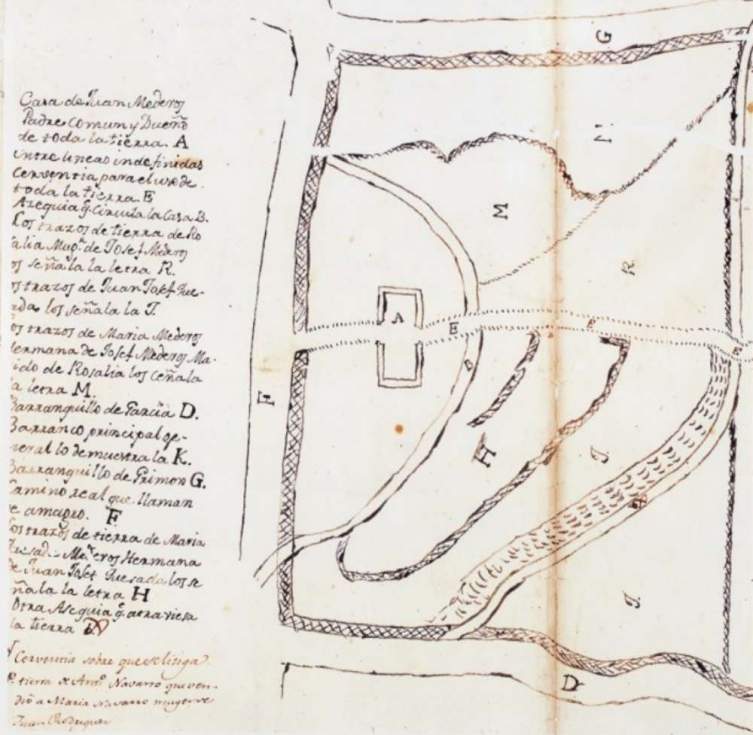 Casa de Juan Mederos
Padre comun y Dueño
de toda la tierra. A
entre lineas indefinidas
Cerventia para el uso de
toda la tierra. E
Azequia q.e Circula la Casa B.
Los trazos de tierra de Ro
salia Mug.r de Josef Medero
os señala la letra R.
os trazos de Juan Josef Que-
sada los señala la J.
os trazos de Maria Mederos
Hermana de Josef Mederos Ma-
rido de Rosalia los ceñala
la letra M.
Barranquillo de Garcia D.
Barranco principal ge-
neral lo demuestra la K.
Barranquillo de Grimon G.
Camino real que llaman
de amagro. F
Los trazos de tierra de Maria
Quesad. Mederos Hermana
de Juan Josef Quesada los se
ñala la letra H
Otra Asequia q.e atraviesa
la tierra
Cerventia sobre que se litiga
tierra de Ant.o Navarro que ven-
dió a Maria Navarro muger de
Juan Rodriguez
G
M
M
R
A
E
E
B
F
H
J
J
D